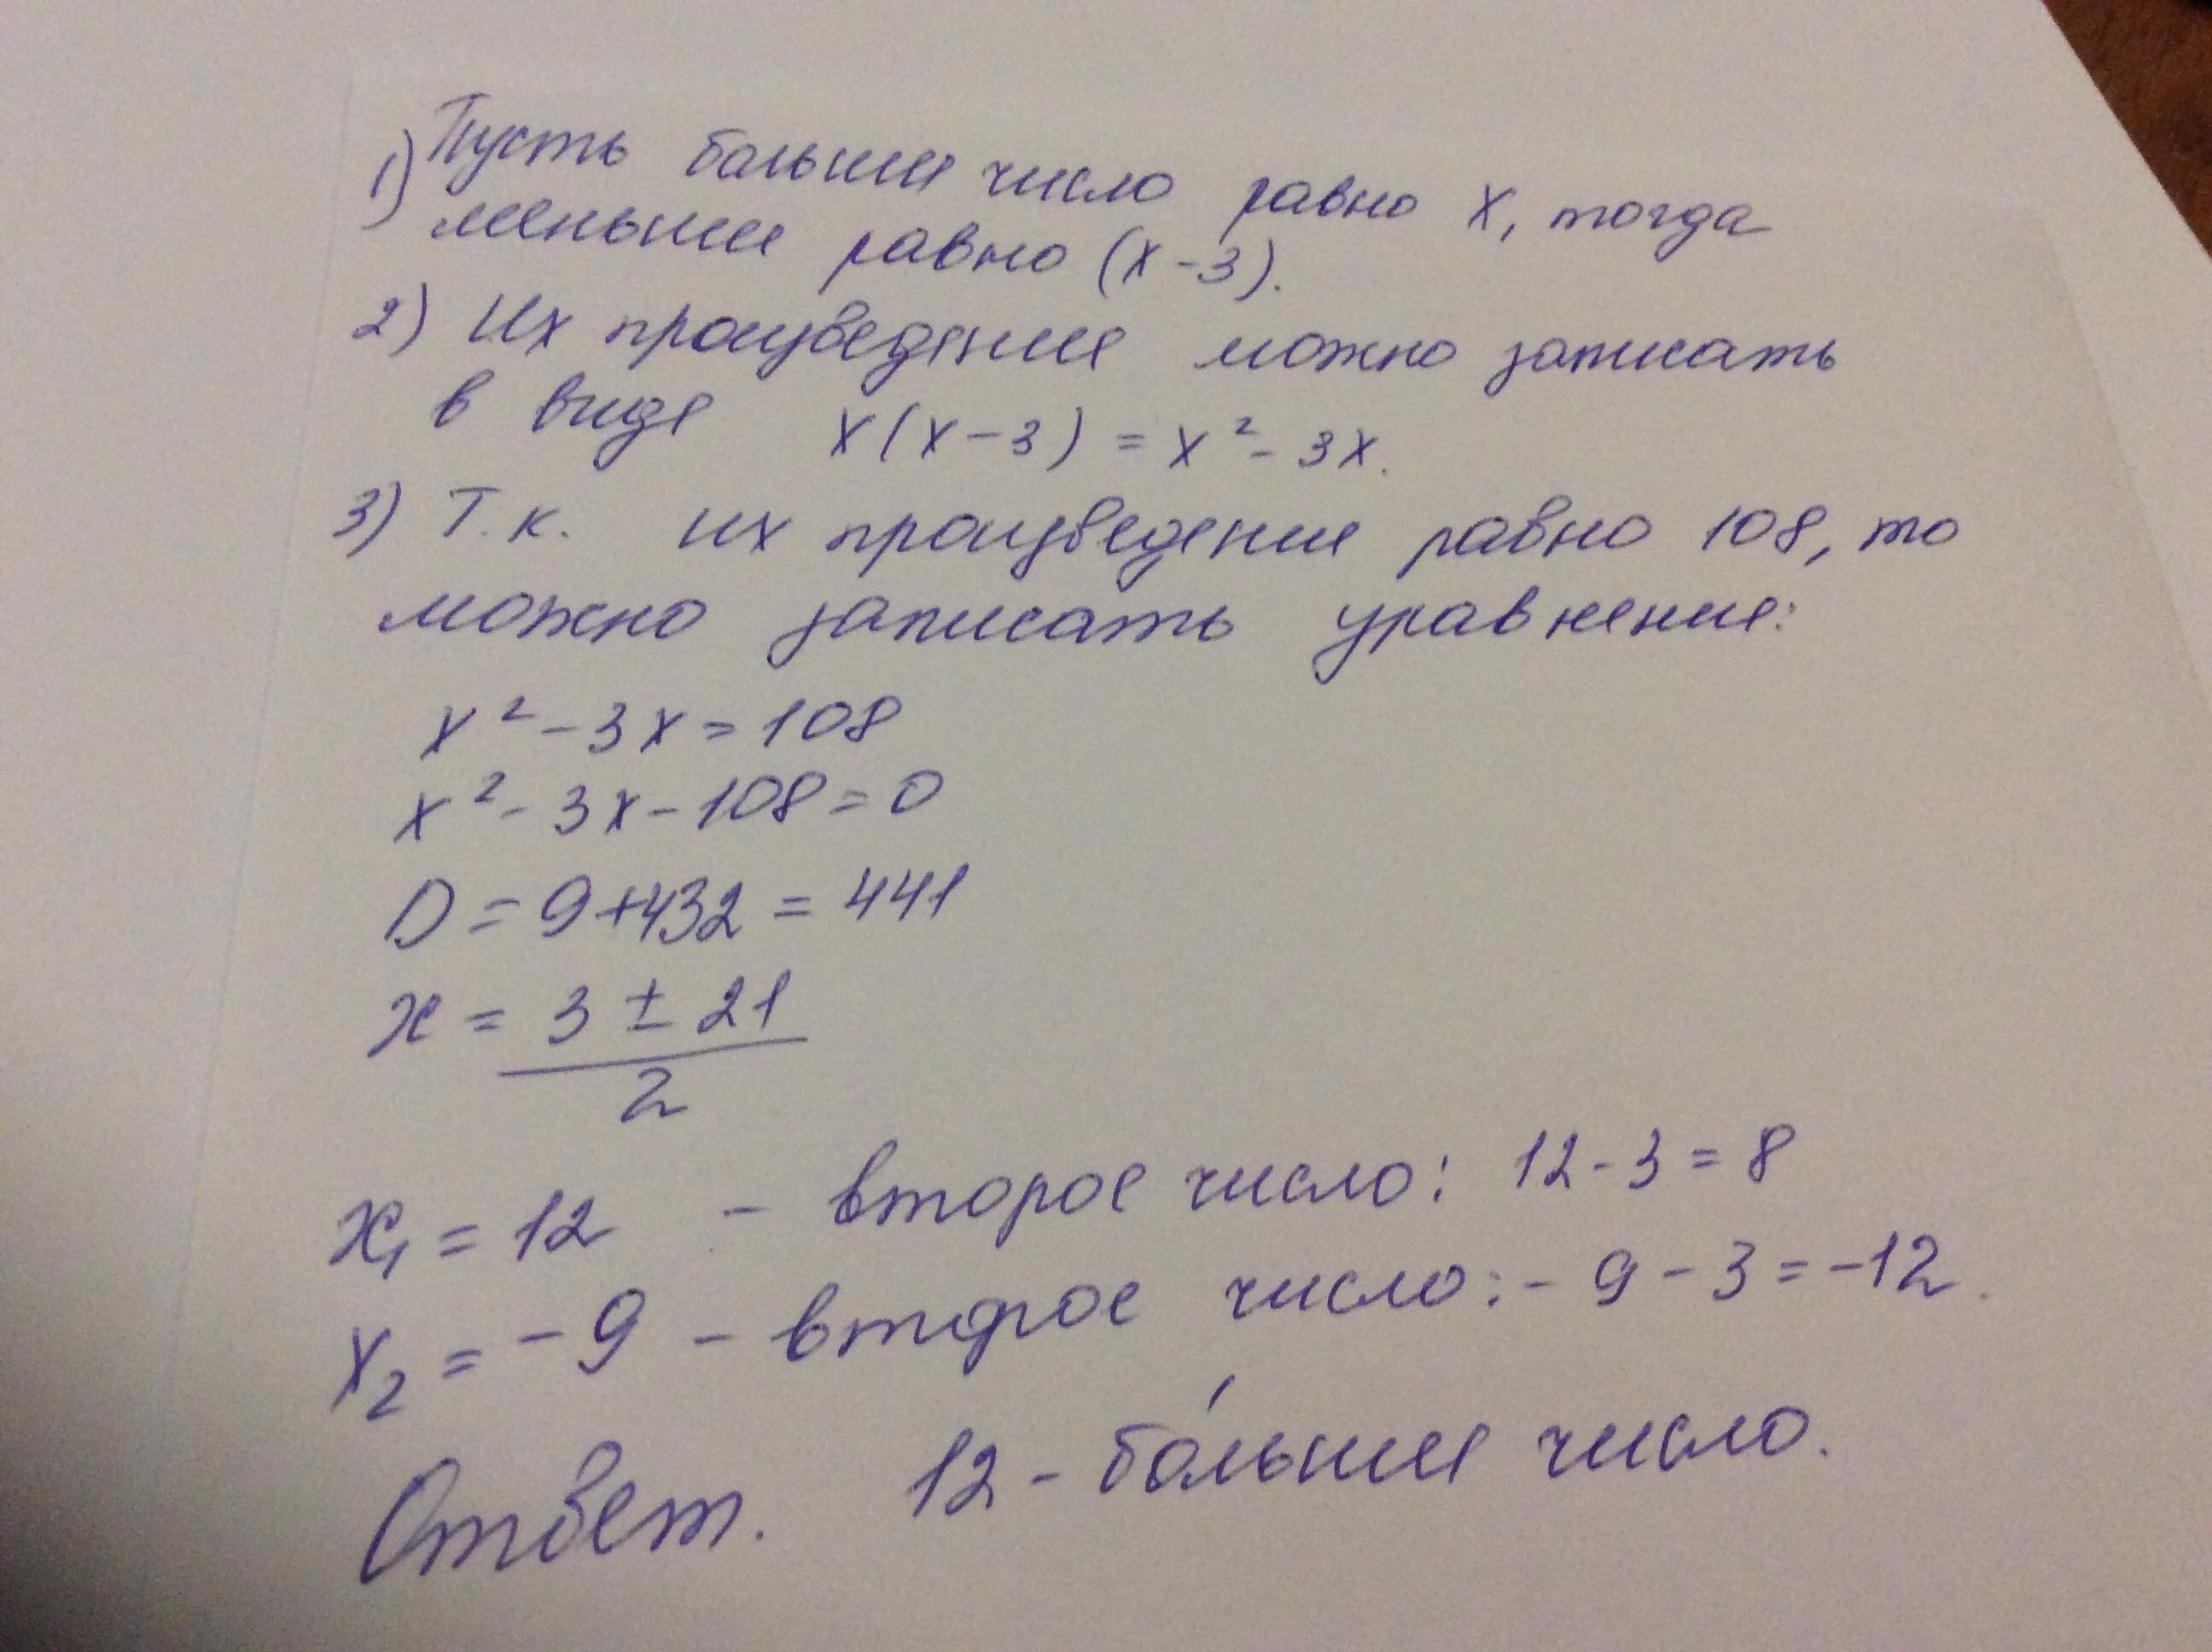 1) Пусть больше число равно x, тогда
меньшее равно (x-3).
2) Их произведение можно записать
в виде x(x-3) = x² - 3x.
3) Т.к. их произведение равно 108, то
можно записать уравнение:
x² - 3x = 108
x² - 3x - 108 = 0
D = 9+432 = 441
x = 3 ± 21
2
x₁ = 12 - второе число: 12-3 = 8
x₂ = -9 - второе число: -9-3 = -12.
Ответ. 12 - бо́льшее число.